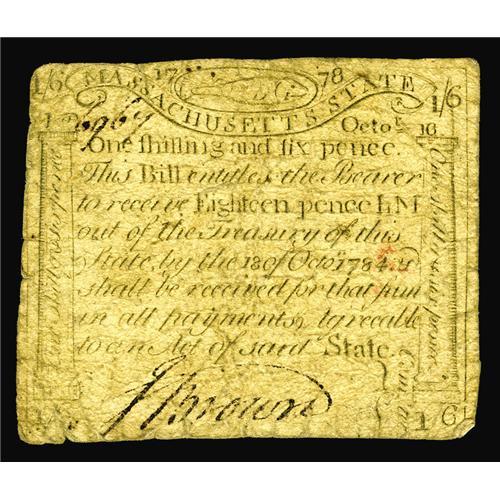 1/6 17 78 1/6
MASSACHUSETTS STATE
Octo.r 16
One shilling and six pence.
This Bill entitles the Bearer
to receive Eighteen pence LM
out of the Treasury of this
State, by the 18 of Octo.r 1784, &
shall be received for that sum
in all payments, agreeable
to an Act of said State.
J Brown
1/6